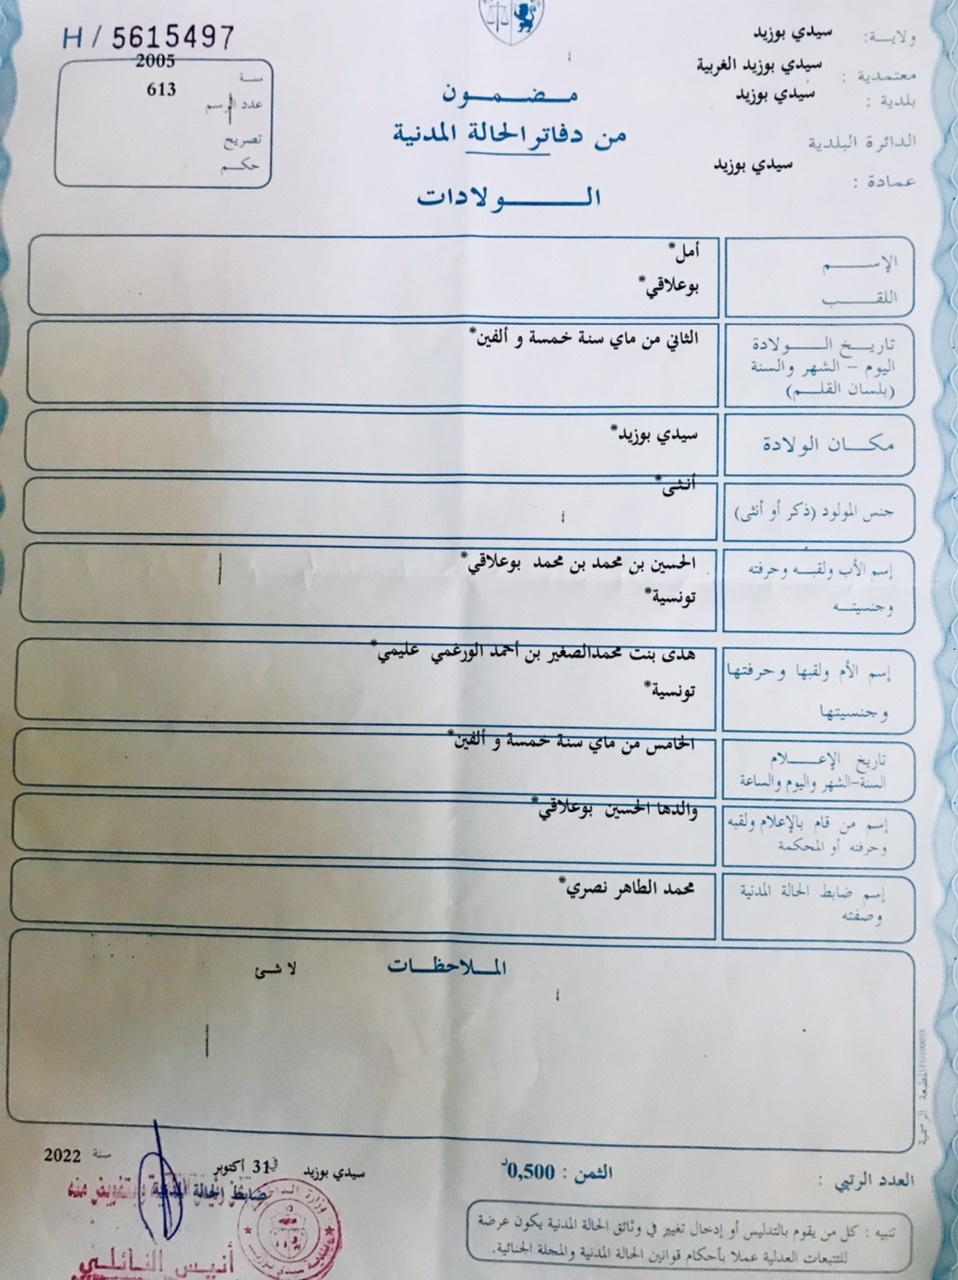 ولاية: سيدي بوزيد
معتمدية : سيدي بوزيد الغربية
بلدية : سيدي بوزيد
الدائرة البلدية
عمادة : سيدي بوزيد
H / 5615497
سنة 2005
عدد الرسم 613
تصريح
حكم
مضمون
من دفاتر الحالة المدنية
الولادات
الإسم أمل*
اللقب بوعلاقي*
تاريخ الولادة الثاني من ماي سنة خمسة و ألفين*
اليوم - الشهر والسنة
(بلسان القلم)
مكان الولادة سيدي بوزيد*
جنس المولود (ذكر أو أنثى) أنثى*
إسم الأب ولقبه وحرفته الحسين بن محمد بن محمد بوعلاقي*
وجنسيته تونسية*
إسم الأم ولقبها وحرفتها هدى بنت محمدالصغير بن أحمد الورغمي عليمي*
وجنسيتها تونسية*
تاريخ الإعلام الخامس من ماي سنة خمسة و ألفين*
السنة-الشهر واليوم والساعة
إسم من قام بالإعلام ولقبه والدها الحسين بوعلاقي*
وحرفته أو المحكمة
إسم ضابط الحالة المدنية محمد الطاهر نصري*
وصفته
الملاحظات لا شئ
المطبعة الرسمية
العدد الرتبي :
الثمن : 0,500د
سيدي بوزيد في 31 أكتوبر سنة 2022
ضابط الحالة المدنية وبتفويض منه
أنيس النائلي
تنبيه : كل من يقوم بالتدليس أو إدخال تغيير في وثائق الحالة المدنية يكون عرضة
للتتبعات العدلية عملا بأحكام قوانين الحالة المدنية والمجلة الجنائية.